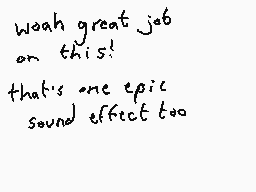 woah great job
on this!
that's one epic
sound effect too